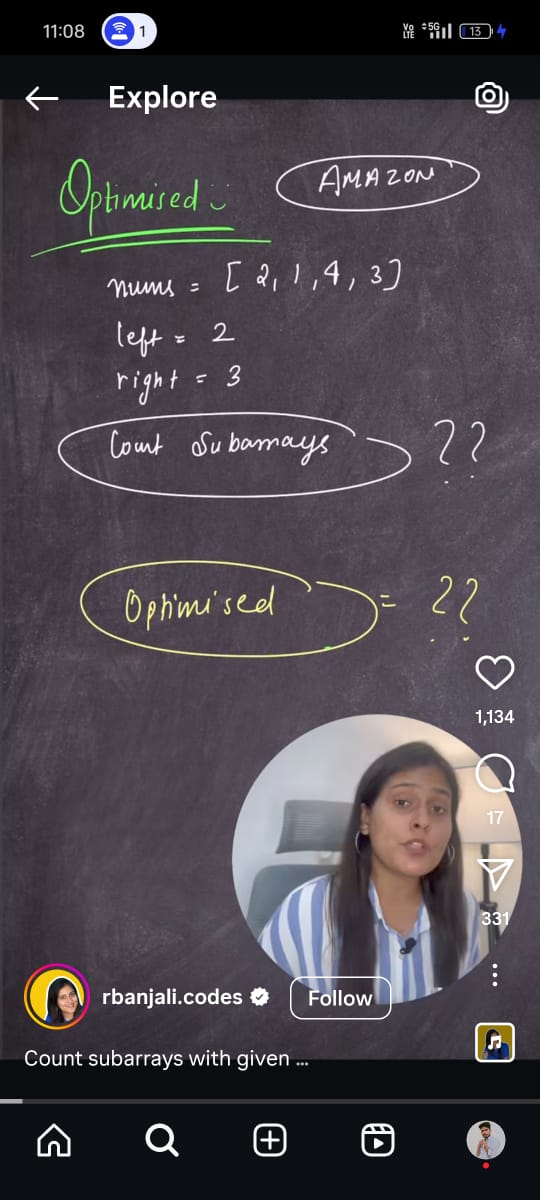 11:08
1
Vo LTE 5G 13
Explore
Optimised
AMAZON
nums = [ 2, 1, 4, 3 ]
left = 2
right = 3
Count Subarrays ??
Optimised = ??
1,134
17
331
rbanjali.codes
Follow
Count subarrays with given ...